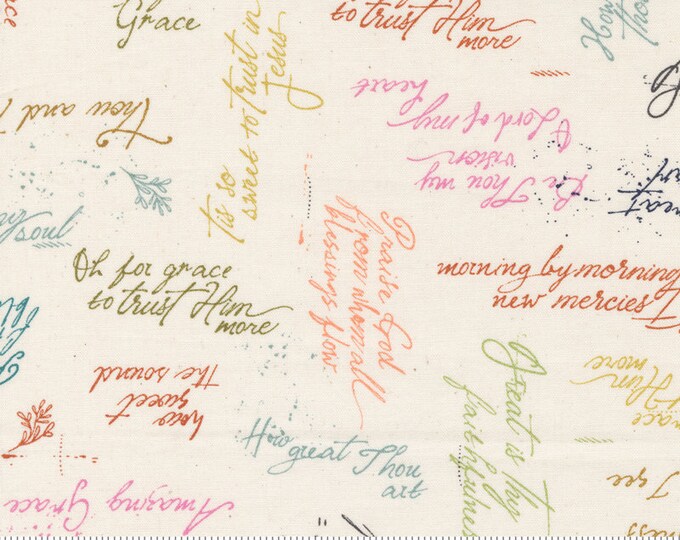 Grace
to trust Him
more
How
Tho
tis so
sweet to trust in
Jesus
Thou and
O Lord of my
heart
Be Thou my
vision
soul
Oh for grace
to trust Him
more
Praise God
from whom all
blessings flow
morning by morning
new mercies I
how
sweet
the sound
How
great Thou
art
Great is thy
faithfulness
Him
more
Amazing Grace
I see